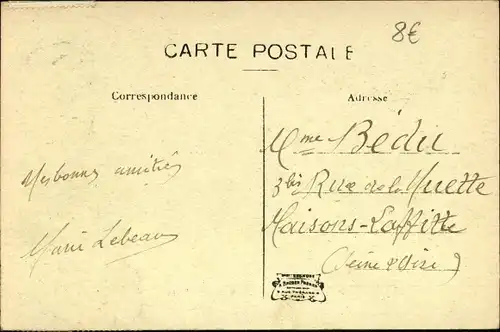 8€
CARTE POSTALE
Correspondance
Adresse
Mes bonnes amitiés
Marie Lebeau
Mme Bédu
3 bis Rue de la Muette
Maisons-Laffitte
(Seine & Oise)
PARIS